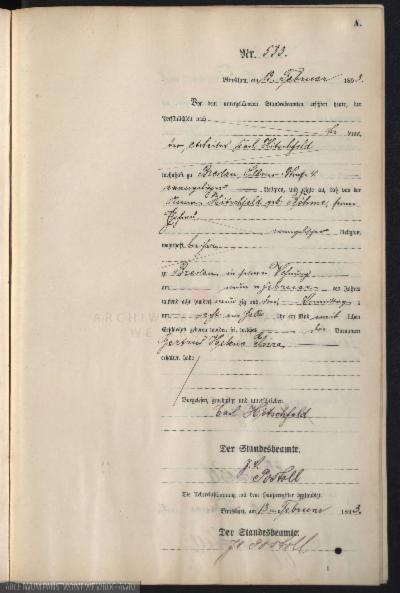 A.
Nr. 533.
Breslau, am 13. Februar 1893.
Vor dem unterzeichneten Standesbeamten erschien heute, der
Persönlichkeit nach
kannt,
der Arbeiter Karl Hirschfeld
wohnhaft zu Breslau,
evangelischer Religion, und zeigte an, daß von der
Hirschfeld geb. Böhme, seiner
Ehefrau
evangelischer Religion,
wohnhaft bei ihm
zu Breslau in seiner Wohnung
am neunten Februar des Jahres
tausend acht hundert neunzig und drei Vormittags
um acht ein halb Uhr ein Kind weiblichen
Geschlechts geboren worden sei, welches den Vornamen
Gertrud Helene
erhalten habe
Vorgelesen, genehmigt und unterschrieben
Karl Hirschfeld
Der Standesbeamte.
Die Uebereinstimmung mit dem Hauptregister beglaubigt
Breslau, am 13. Februar 1893.
Der Standesbeamte.